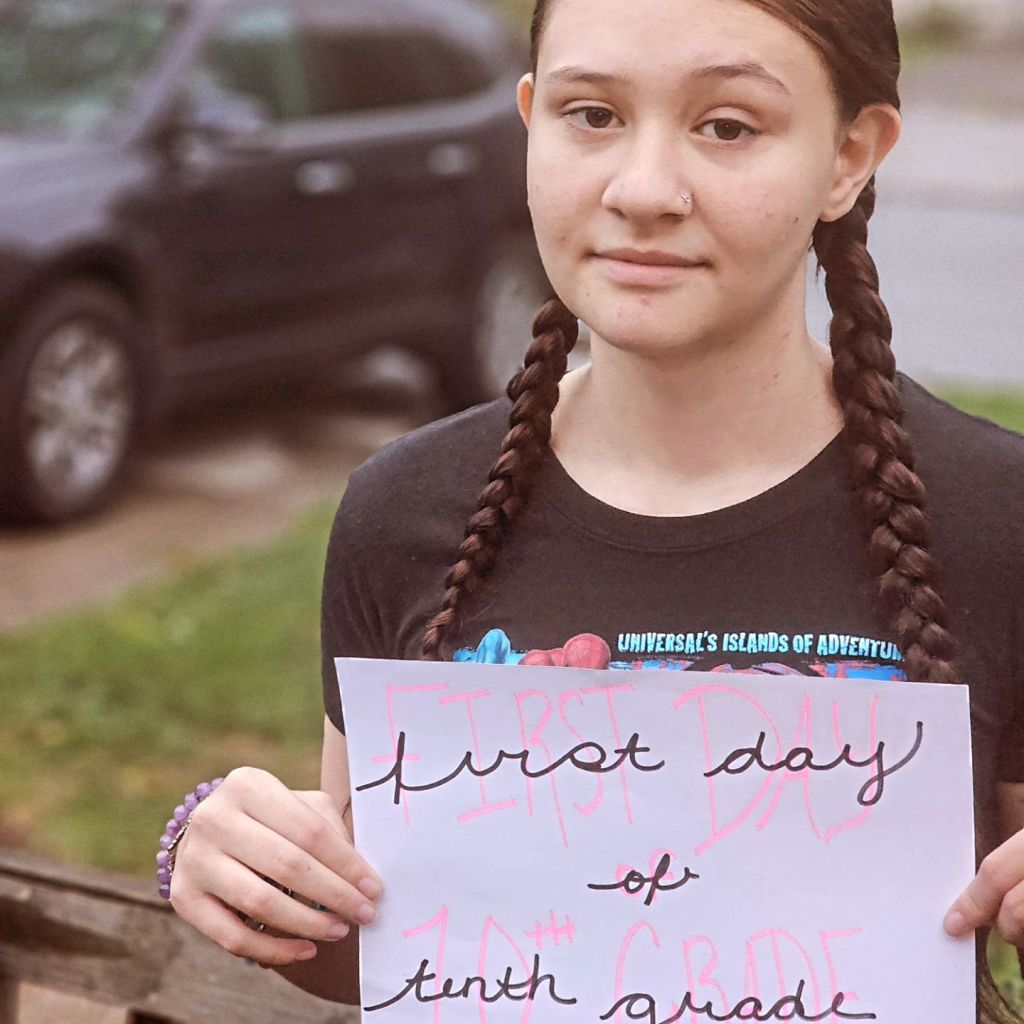 UNIVERSAL'S ISLANDS OF ADVENTU
FIRST DAY
first day
OF
of
10TH GRADE
tenth grade